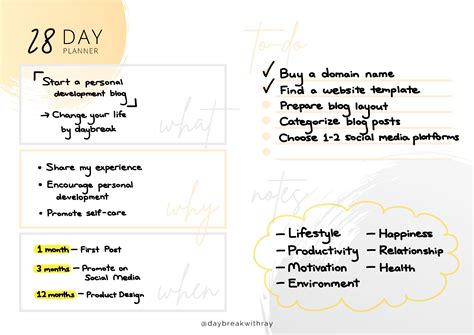 28 DAY
PLANNER
Start a personal
development blog
→ Change your life
by daybreak
what
• Share my experience
• Encourage personal
development
• Promote self-care
why
1 month – First Post
3 months – Promote on
Social Media
12 months – Product Design
when
to-do
✓ Buy a domain name
✓ Find a website template
• Prepare blog layout
• Categorize blog posts
• Choose 1-2 social media platforms
notes
– Lifestyle
– Productivity
– Motivation
– Environment
– Happiness
– Relationship
– Health
@daybreakwithray